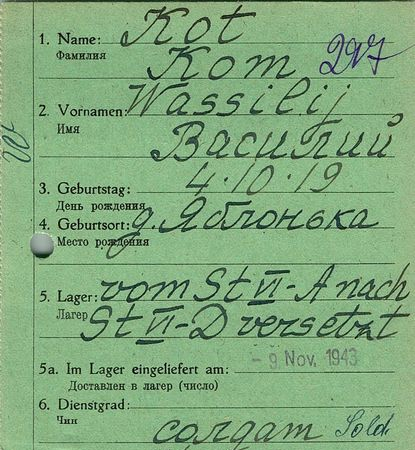 1. Name: Kot
Фамилия Кот 297
2. Vornamen: Wassilij
Имя Василий
3. Geburtstag: 4.10.19
День рождения
4. Geburtsort: д. Яблонька
Место рождения
5. Lager: vom St VI-A nach
Лагер St VI-D versetzt
- 9. Nov. 1943
5a. Im Lager eingeliefert am:
Доставлен в лагер (число)
6. Dienstgrad:
Чин солдат Sold.